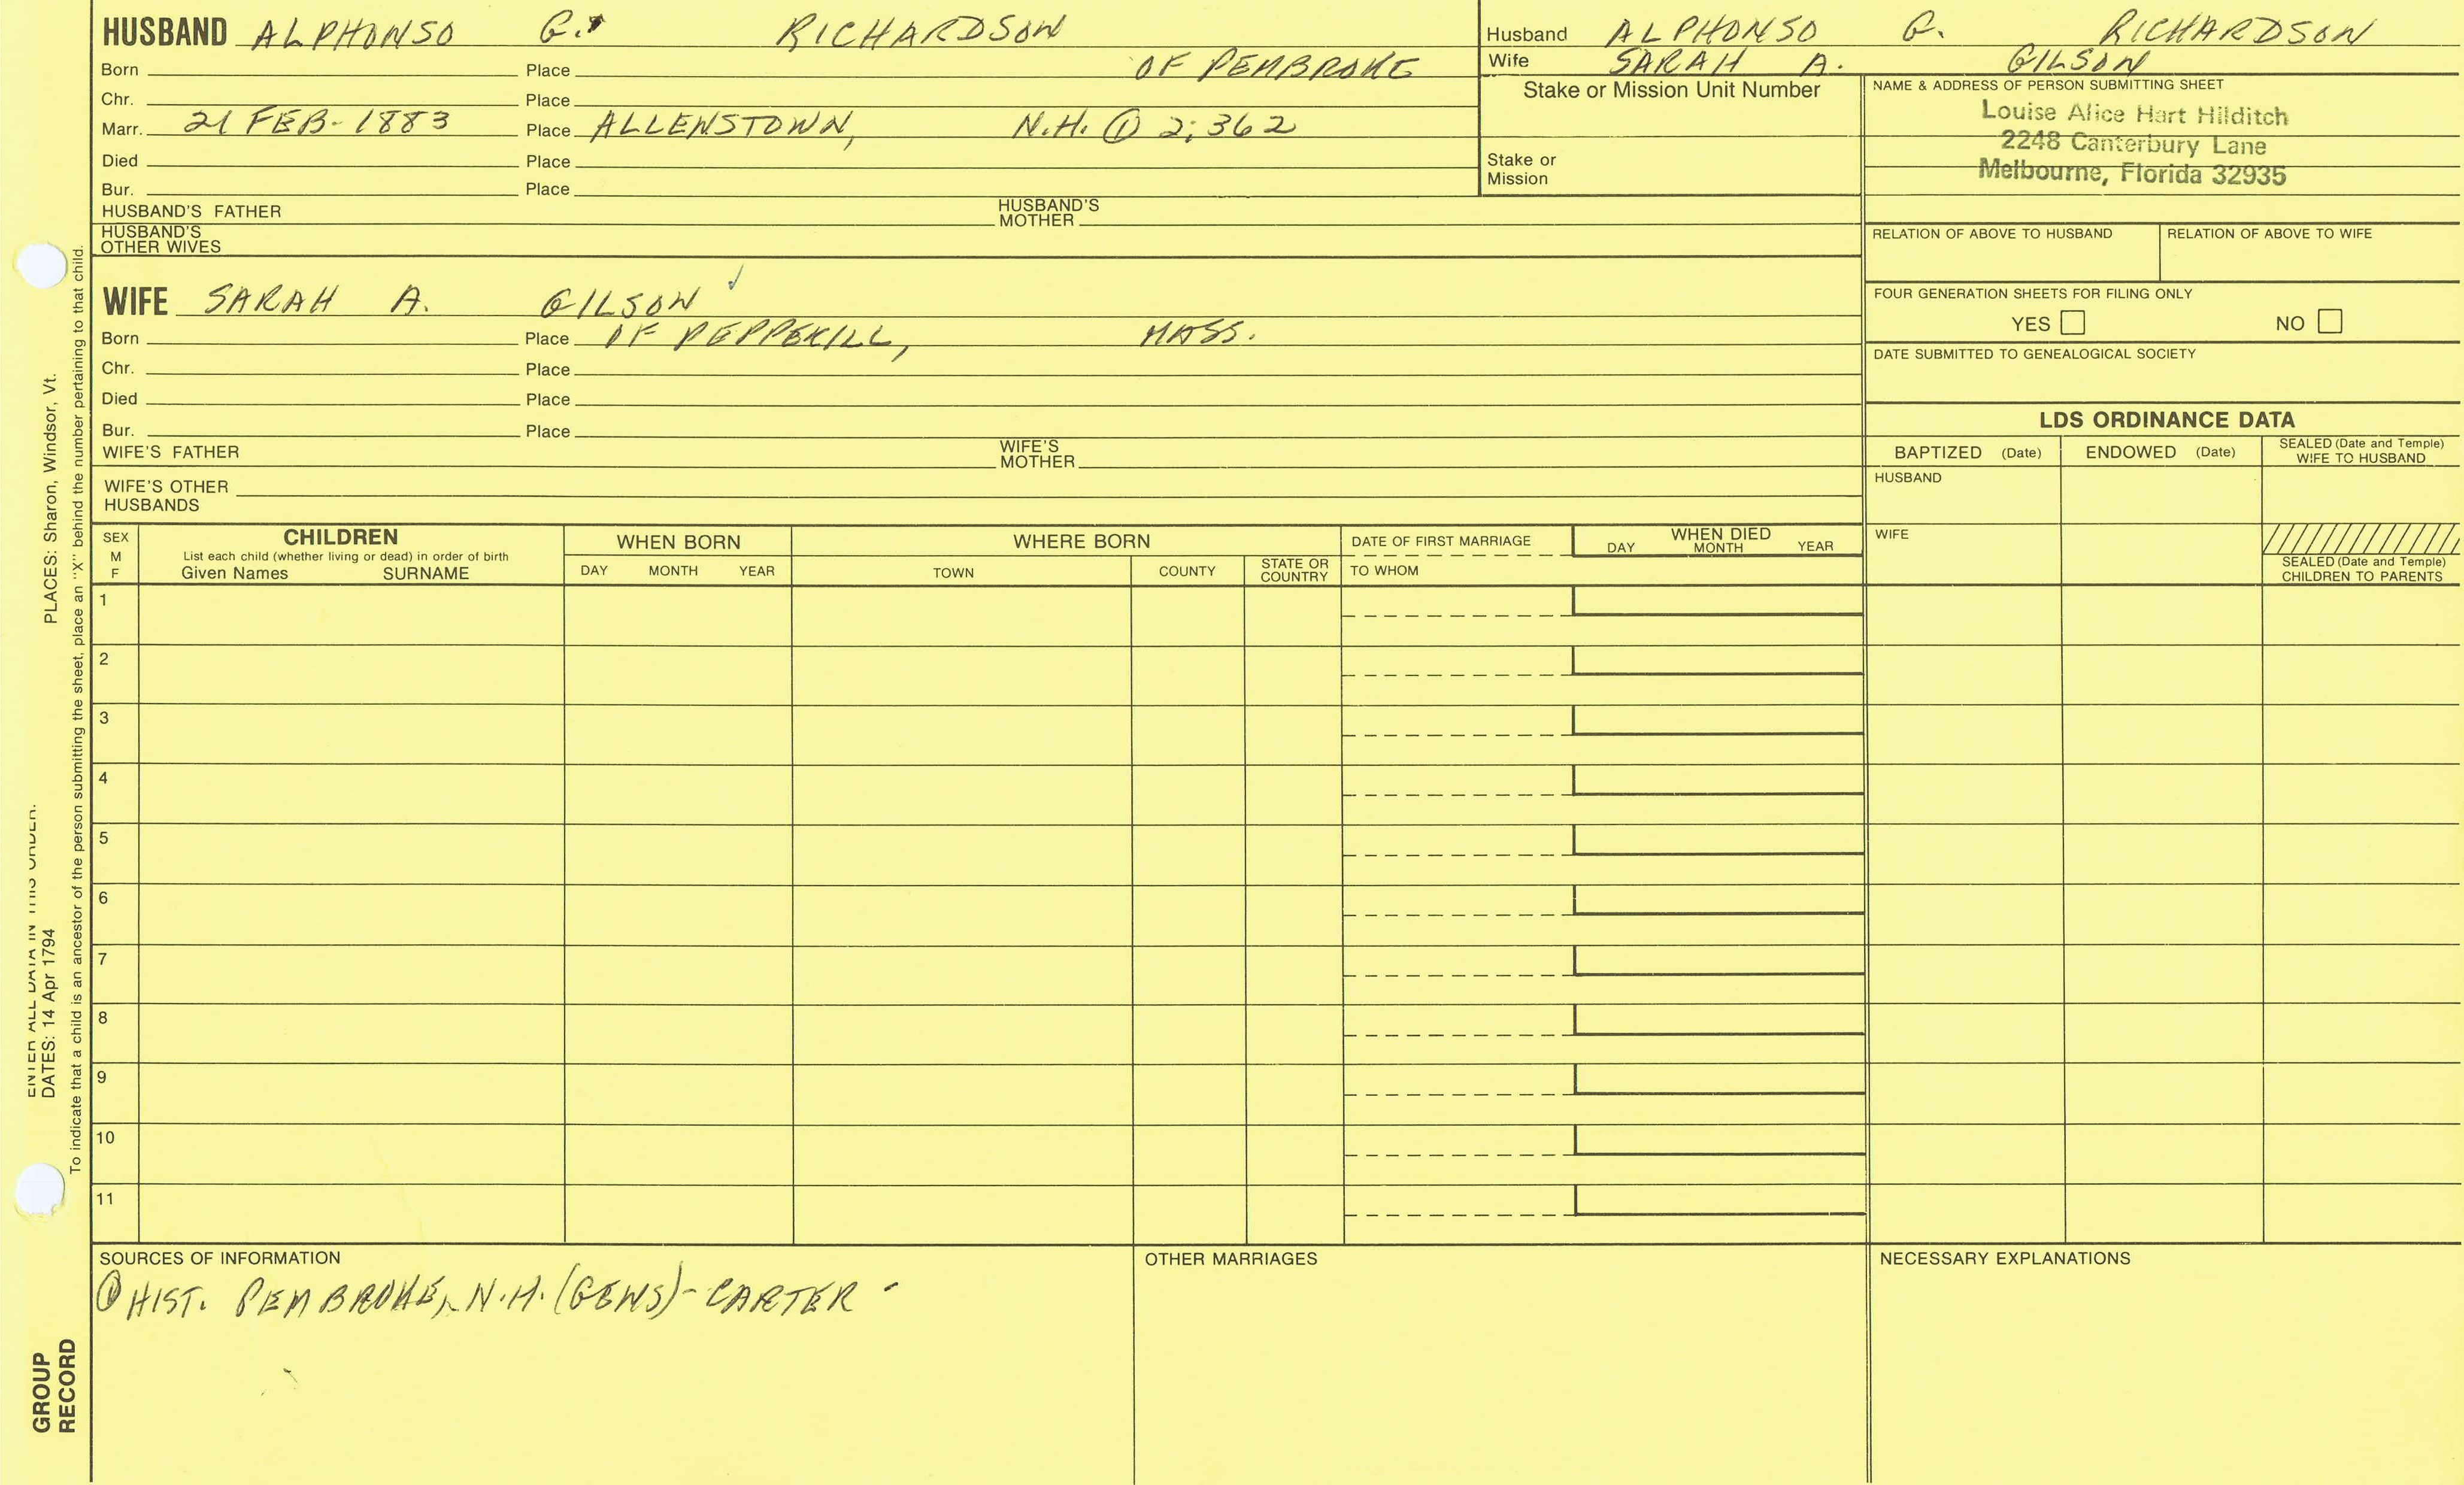 HUSBAND ALPHONSO G. RICHARDSON
Born Place OF PEMBROKE
Chr. Place
Marr. 21 FEB-1883 Place ALLENSTOWN, N.H. ① 2:362
Died Place
Bur. Place
HUSBAND'S FATHER HUSBAND'S MOTHER
HUSBAND'S OTHER WIVES
Husband ALPHONSO G. RICHARDSON
Wife SARAH A. GILSON
Stake or Mission Unit Number
Stake or Mission
NAME & ADDRESS OF PERSON SUBMITTING SHEET
Louise Alice Hart Hilditch
2248 Canterbury Lane
Melbourne, Florida 32935
RELATION OF ABOVE TO HUSBAND RELATION OF ABOVE TO WIFE
FOUR GENERATION SHEETS FOR FILING ONLY
YES NO
DATE SUBMITTED TO GENEALOGICAL SOCIETY
WIFE SARAH A. GILSON ✓
Born Place OF PEPPEKILL, MASS.
Chr. Place
Died Place
Bur. Place
WIFE'S FATHER WIFE'S MOTHER
WIFE'S OTHER HUSBANDS
LDS ORDINANCE DATA
BAPTIZED (Date) ENDOWED (Date) SEALED (Date and Temple) WIFE TO HUSBAND
HUSBAND
WIFE
SEALED (Date and Temple) CHILDREN TO PARENTS
SEX M F
CHILDREN
List each child (whether living or dead) in order of birth
Given Names SURNAME
WHEN BORN
DAY MONTH YEAR
WHERE BORN
TOWN COUNTY STATE OR COUNTRY
DATE OF FIRST MARRIAGE
TO WHOM
WHEN DIED
DAY MONTH YEAR
1
2
3
4
5
6
7
8
9
10
11
SOURCES OF INFORMATION
① HIST. PEMBROKE, N.H. (GENS)- CARTER -
OTHER MARRIAGES
NECESSARY EXPLANATIONS
ENTER ALL DATA IN THIS ORDER:
DATES: 14 Apr 1794 PLACES: Sharon, Windsor, Vt.
To indicate that a child is an ancestor of the person submitting the sheet, place an "X" behind the number pertaining to that child.
GROUP
RECORD